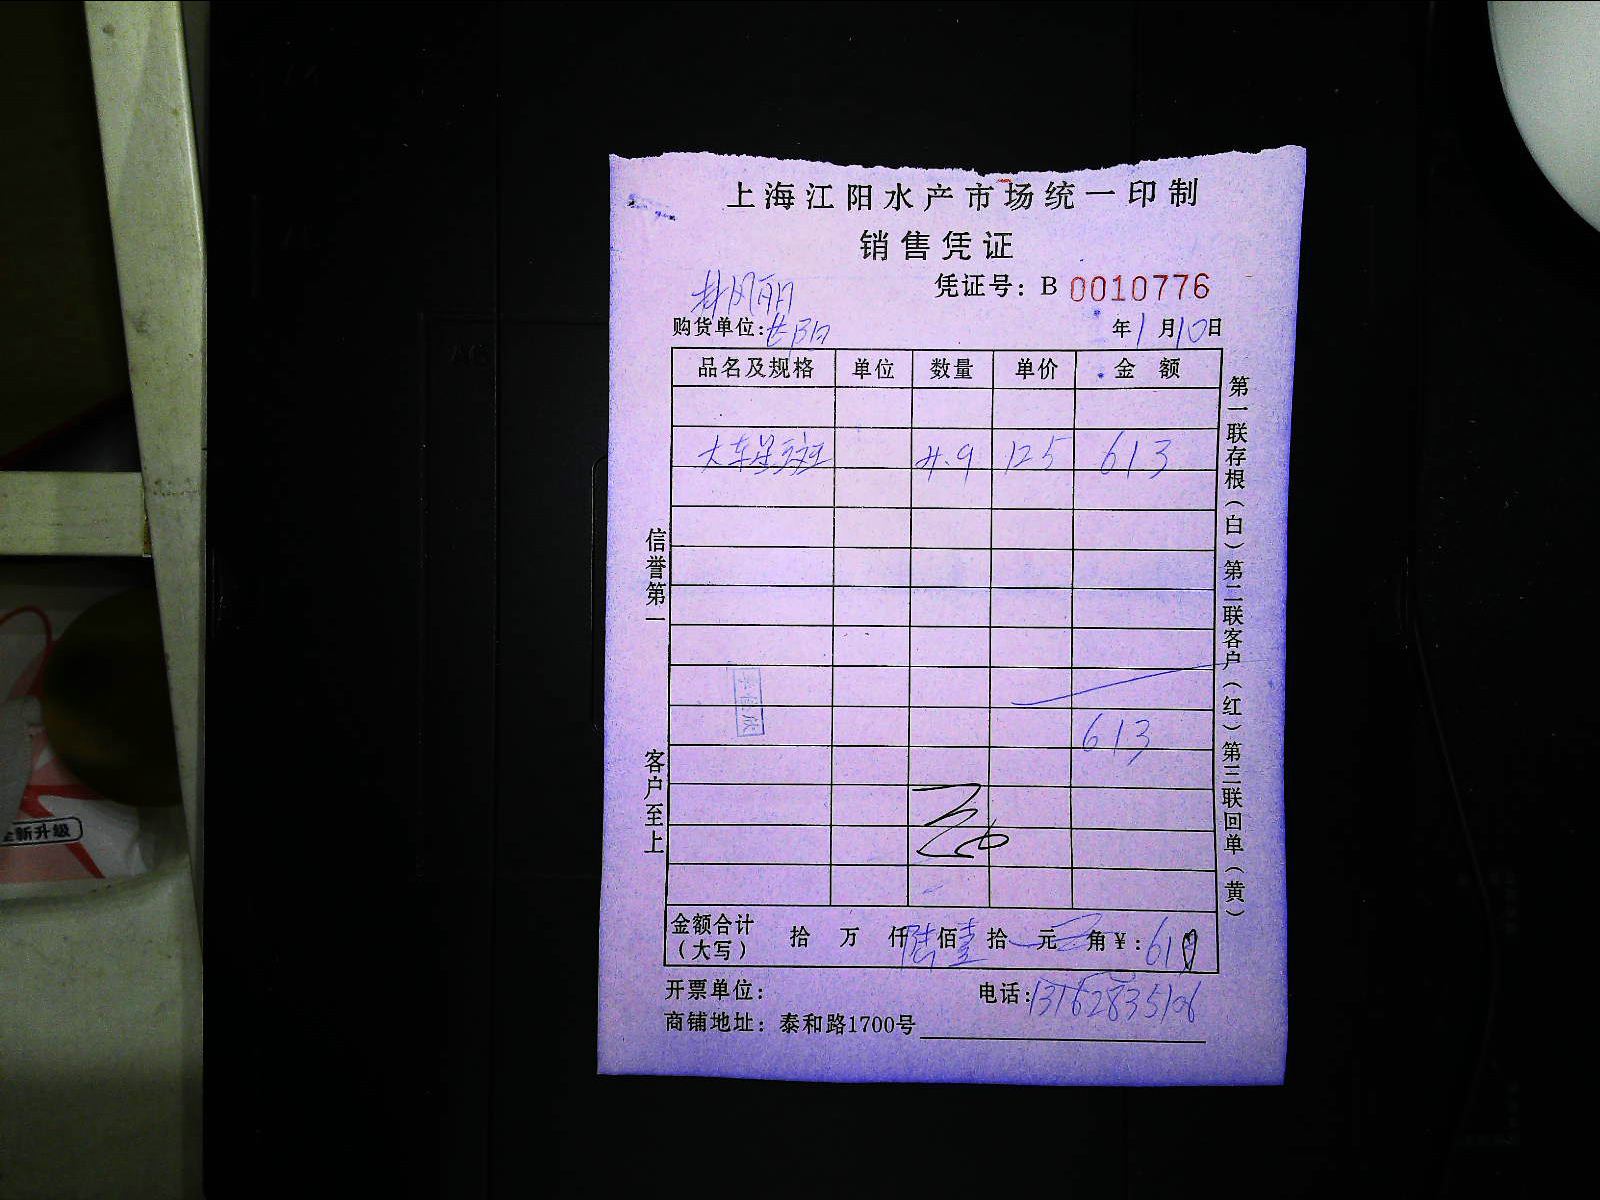 上海江阳水产市场统一印制
销售凭证
凭证号：B 0010776
购货单位：
年1月10日
品名及规格 单位 数量 单价 金额
大东星斑 4.9 125 613
613
金额合计（大写） 拾 万 仟陆佰壹拾 元 角￥：610
开票单位： 电话：13162835106
商铺地址：泰和路1700号
信誉第一
客户至上
第一联存根（白）第二联客户（红）第三联回单（黄）
新升级